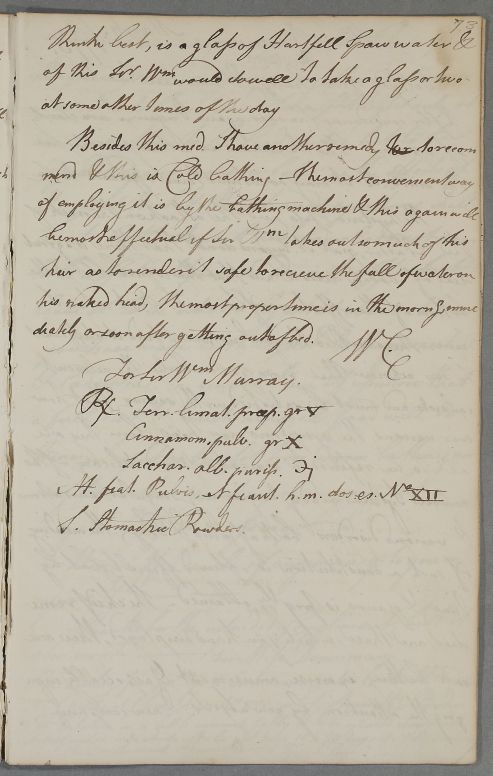 73
think best, is a glass of Hartfell Spaw water &
of this Sir Wm would do well to take a glass or two
at some other times of the day
Besides this med. I have another remedy to recom
mend & this is Cold bathing - the most convenient way
of employing it is by the bathing machine & this again will
be most effectual if Sir Wm takes out so much of his
hair as to render it safe to recieve the fall of water on
his naked head, the most proper time is in the morng, imme
diately or soon after getting out of bed.
WC
For Sir Wm Murray.
Rx. Ferr. limat. prep. gr V
Cinnamom. pulv. gr X
Sacchar. alb. puriss. ℈j
M. fiat Pulvis, et fiant h.m. dos-es. No XII
S. Stomachic Powders.